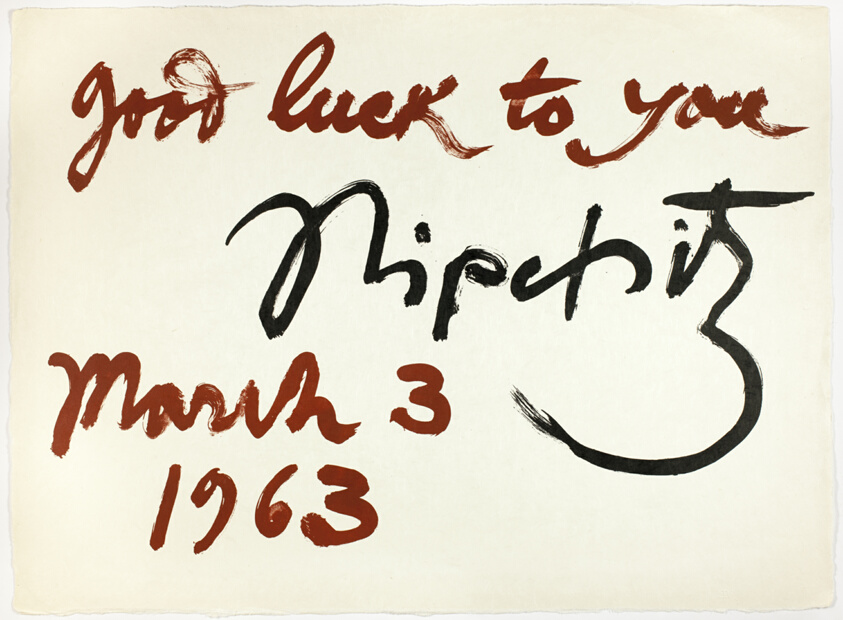 good luck to you
Lipchitz
March 3
1963